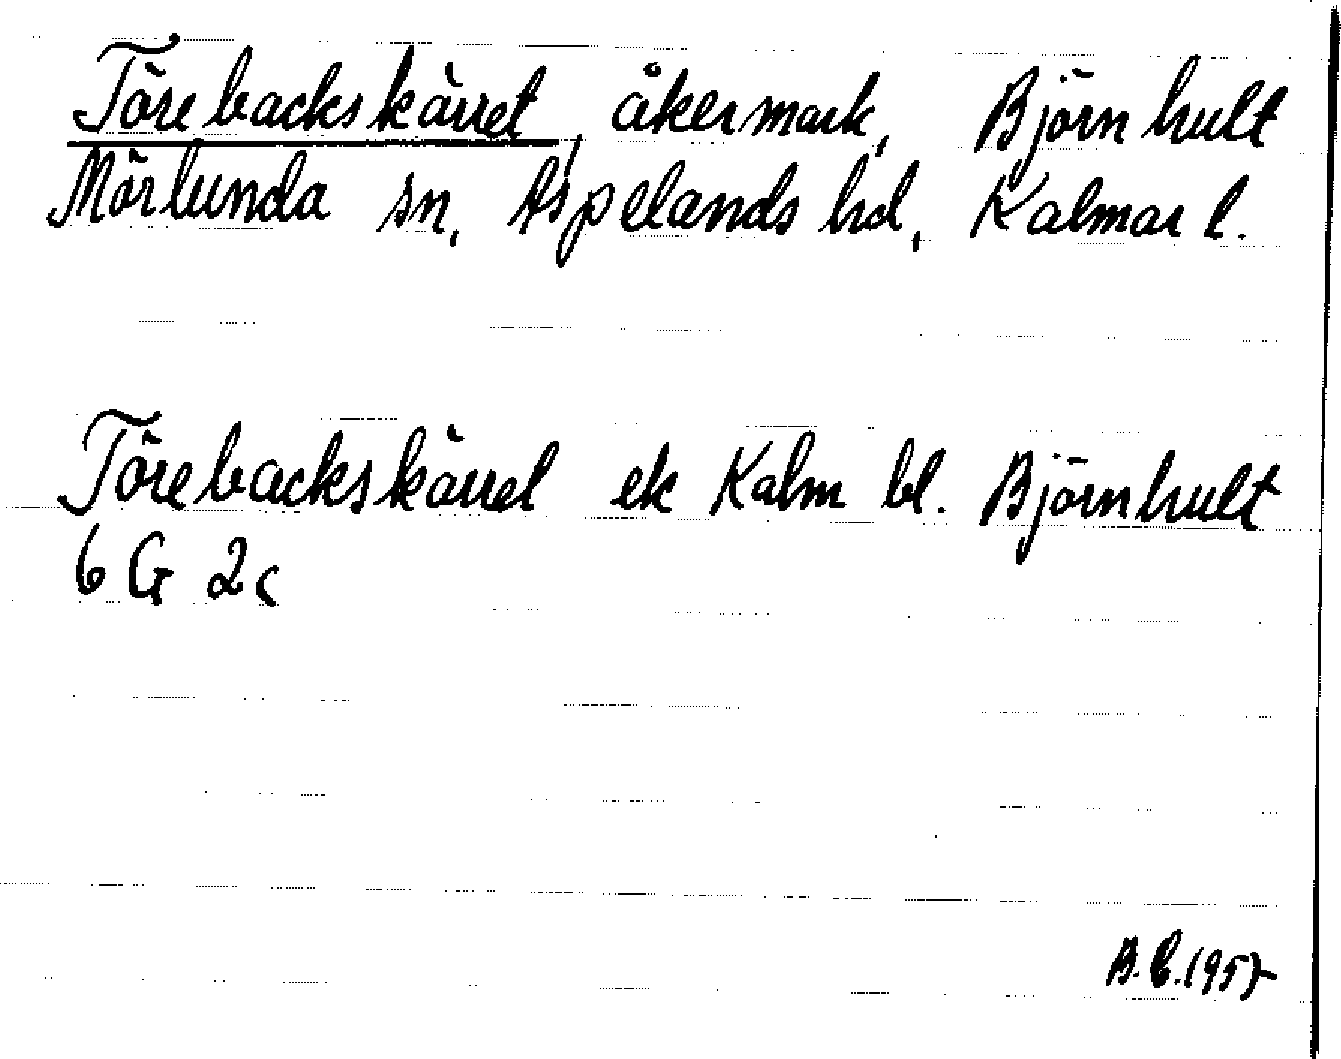 Törebackskärret, åkermark, Björnhult
Mörlunda sn, Aspelands hd, Kalmar l.
Törebackskärret ek Kalm bl. Björnhult
6 G 2c
1957